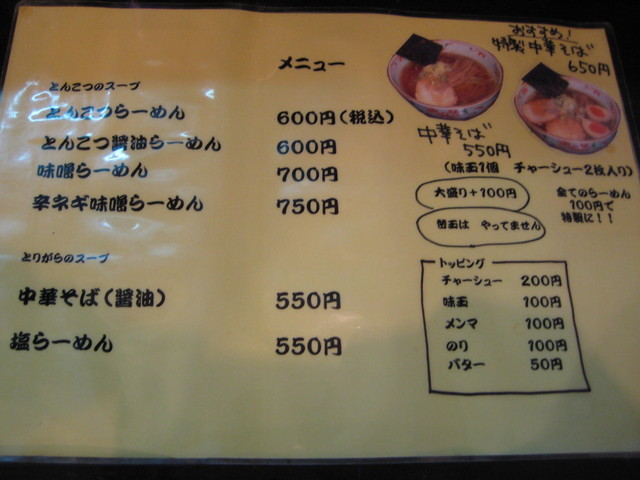 メニュー
とんこつのスープ
とんこつらーめん 600円(税込)
とんこつ醤油らーめん 600円
味噌らーめん 700円
辛ネギ味噌らーめん 750円
とりがらのスープ
中華そば(醤油) 550円
塩らーめん 550円
おすすめ!
特製中華そば
650円
中華そば
550円
(味玉1個 チャーシュー2枚入り)
大盛り+100円
全てのらーめん
100円で
特製に!!
替玉は やってません
トッピング
チャーシュー 200円
味玉 100円
メンマ 100円
のり 100円
バター 50円